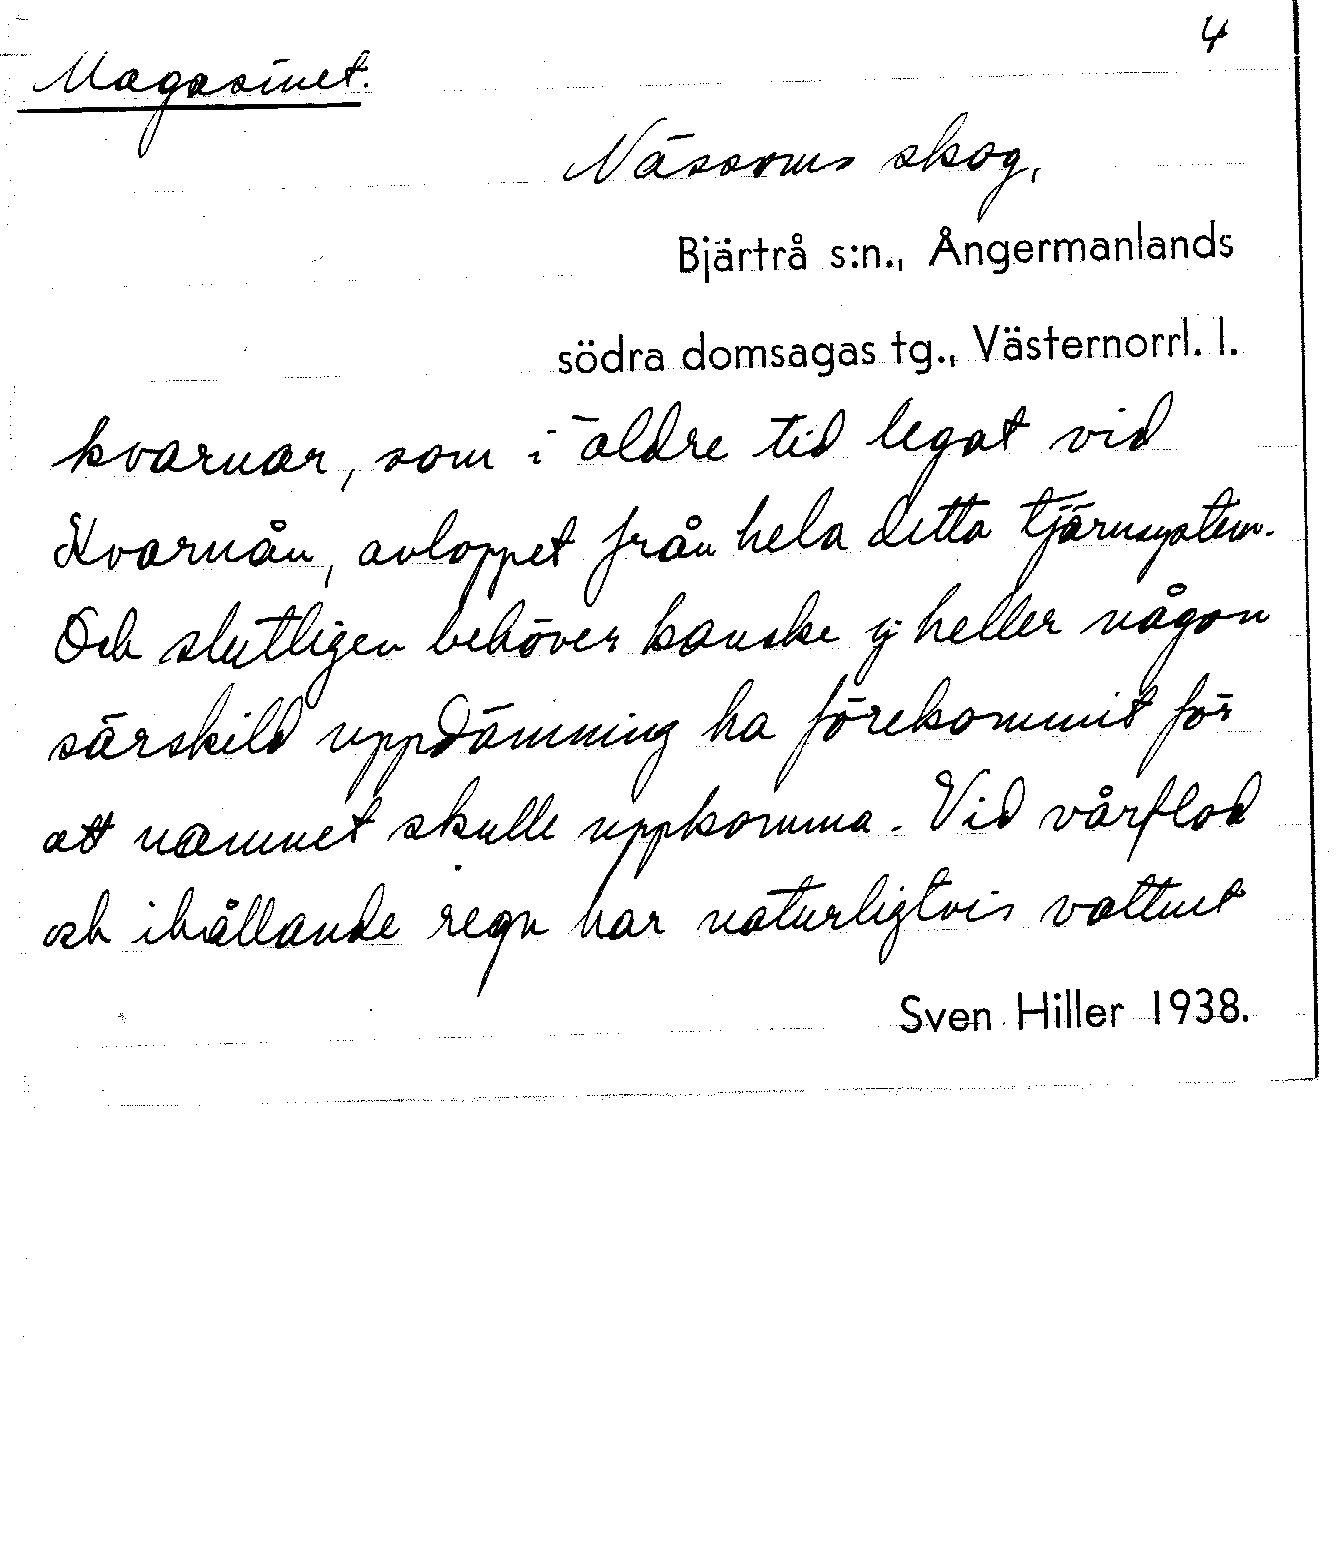 4
Magasinet.
Nässoms skog,
Bjärtrå s:n., Ångermanlands
södra domsagas tg., Västernorrl. l.
kvarnar, som i äldre tid legat vid
Kvarnån, avloppet från hela detta tjärnsystem.
Och slutligen behöver kanske ej heller någon
särskild uppdämning ha förekommit för
att namnet skulle uppkomma. Vid vårflod
och ihållande regn har naturligtvis vattnet
Sven Hiller 1938.